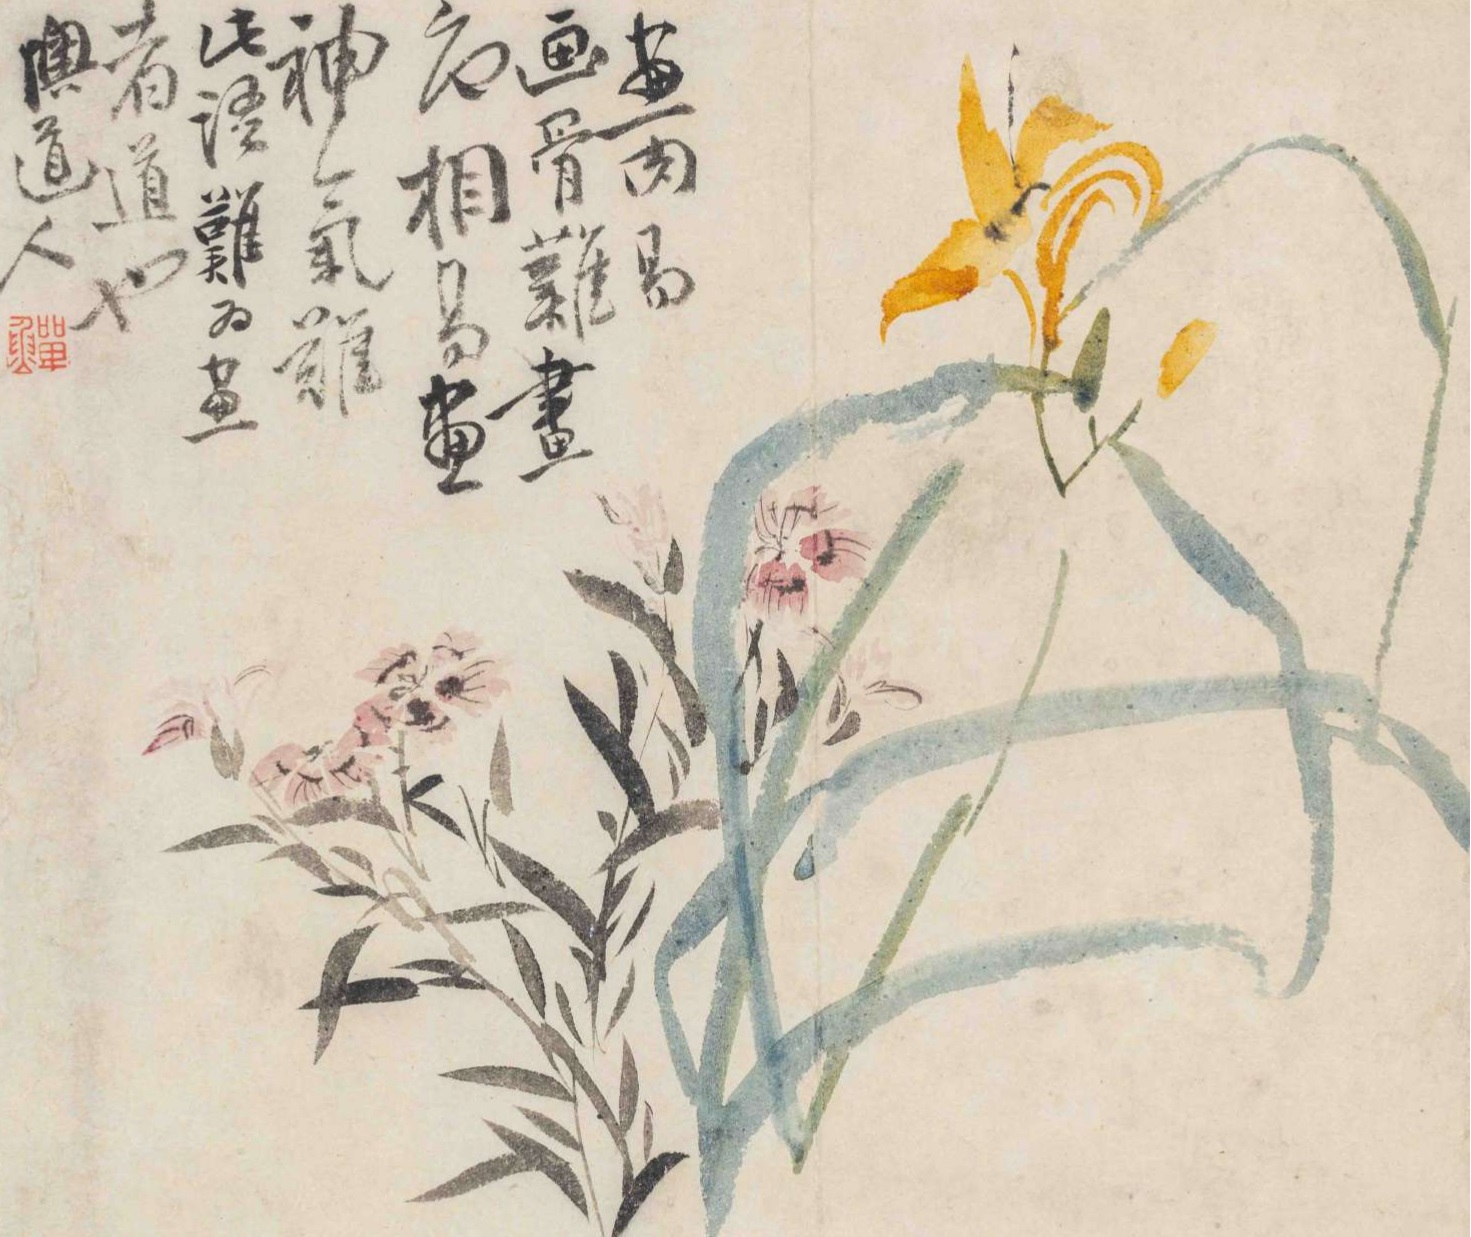 畫肉易
画骨難畫
色相易畫
神氣難
此語難為畫
者道也
懊道人
鱓